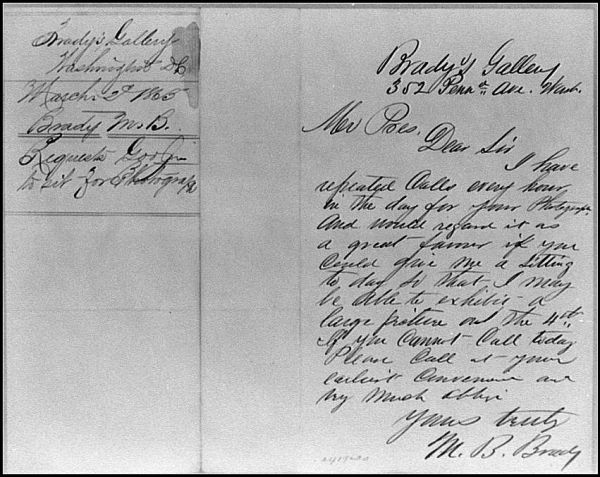 Brady's Gallery
Washington DC
March 2d 1865
Brady M. B.
Requests
to sit for Photograph
Brady's Gallery
352 Penna Ave. Wash.
Mr Pres.
Dear Sir
I have
repeated Calls every hour
in the day for your Photograph
and would regard it as
a great favour if you
could give me a sitting
to day so that I may
be able to exhibit a
large picture on the 4th.
If you cannot call today
Please call at your
earliest convenience and
very much oblige
Yours truly
M. B. Brady